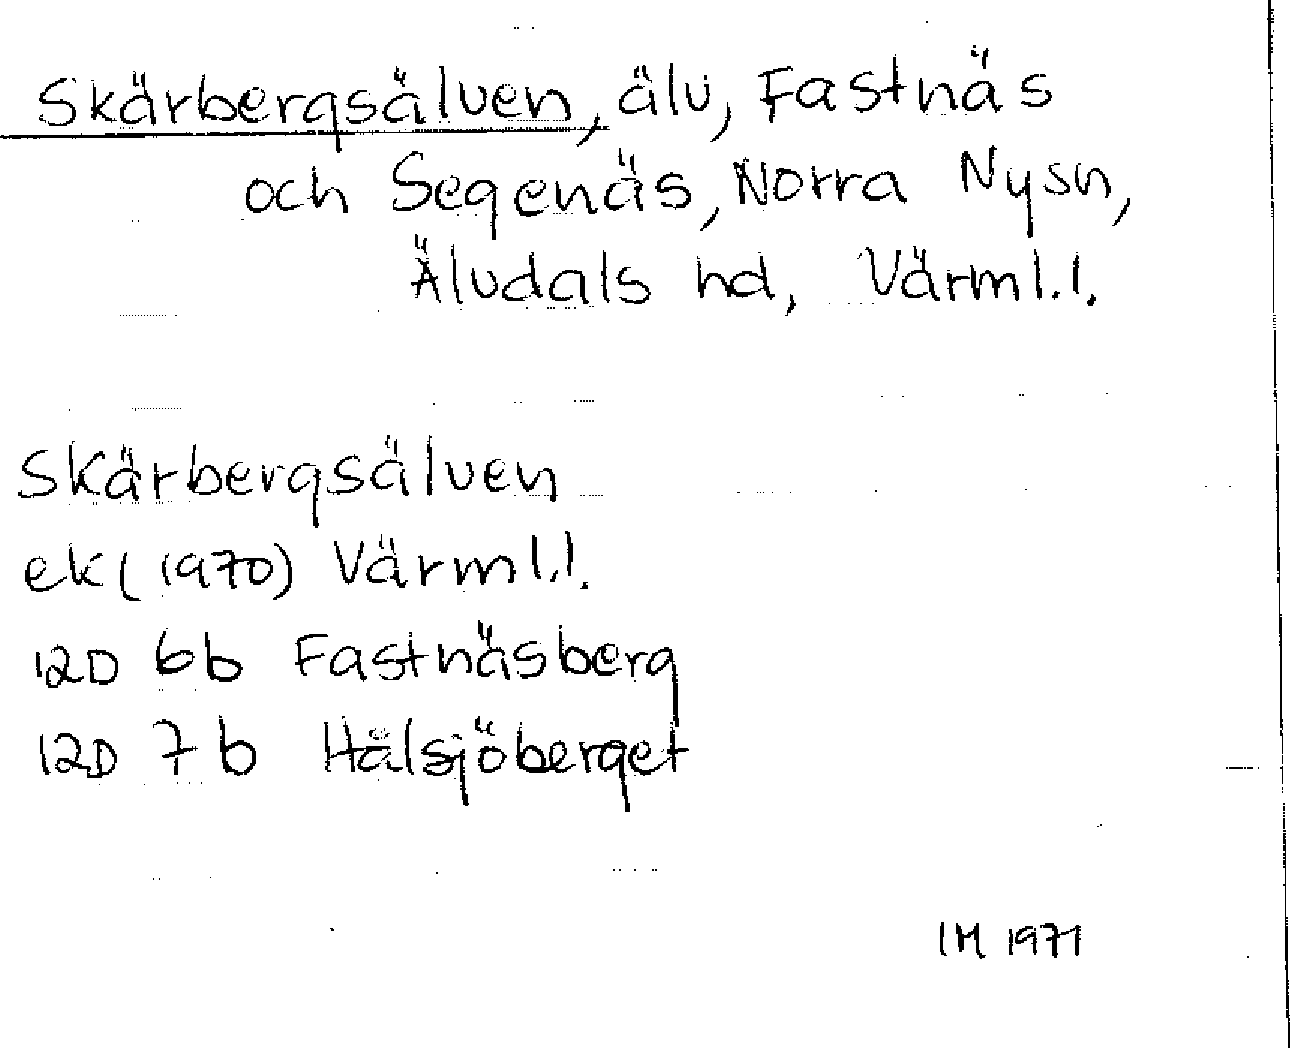 Skärbergsälven, älv, Fastnäs
och Segenäs, Norra Nysn,
Älvdals hd, Värml.l.
Skärbergsälven
ek (1970) Värml.l.
12D 6b Fastnäsberg
12D 7b Hålsjöberget
IM 1971